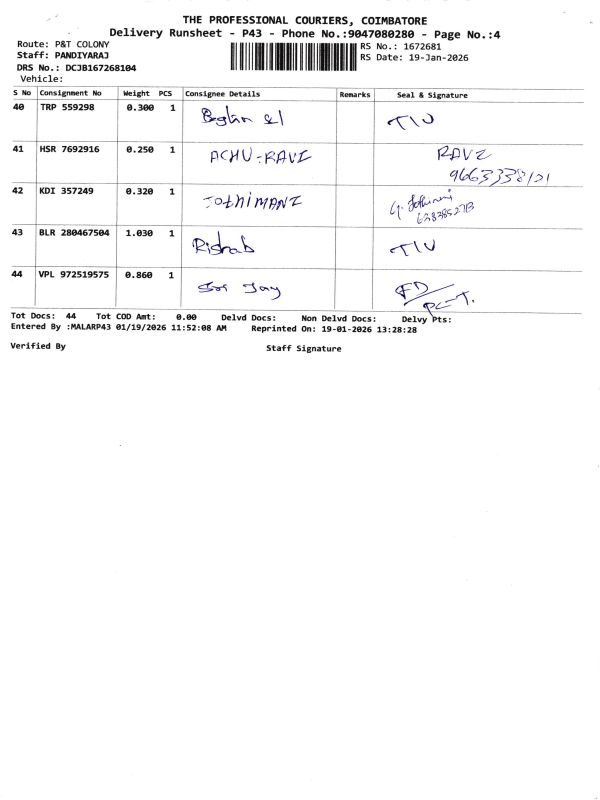 THE PROFESSIONAL COURIERS, COIMBATORE
Delivery Runsheet - P43 - Phone No.:9047080280 - Page No.:4
Route: P&T COLONY
RS No.: 1672681
Staff: PANDIYARAJ
RS Date: 19-Jan-2026
DRS No.: DCJB167268104
Vehicle:
S No Consignment No Weight PCS Consignee Details Remarks Seal & Signature
40 TRP 559298 0.300 1
41 HSR 7692916 0.250 1 ACHU-RAVI RAVI
42 KDI 357249 0.320 1 JOTHIMANI G. Jothimani
43 BLR 280467504 1.030 1 Rishab
44 VPL 972519575 0.860 1
Tot Docs: 44 Tot COD Amt: 0.00 Delvd Docs: Non Delvd Docs: Delvy Pts:
Entered By :MALARP43 01/19/2026 11:52:08 AM Reprinted On: 19-01-2026 13:28:28
Verified By Staff Signature